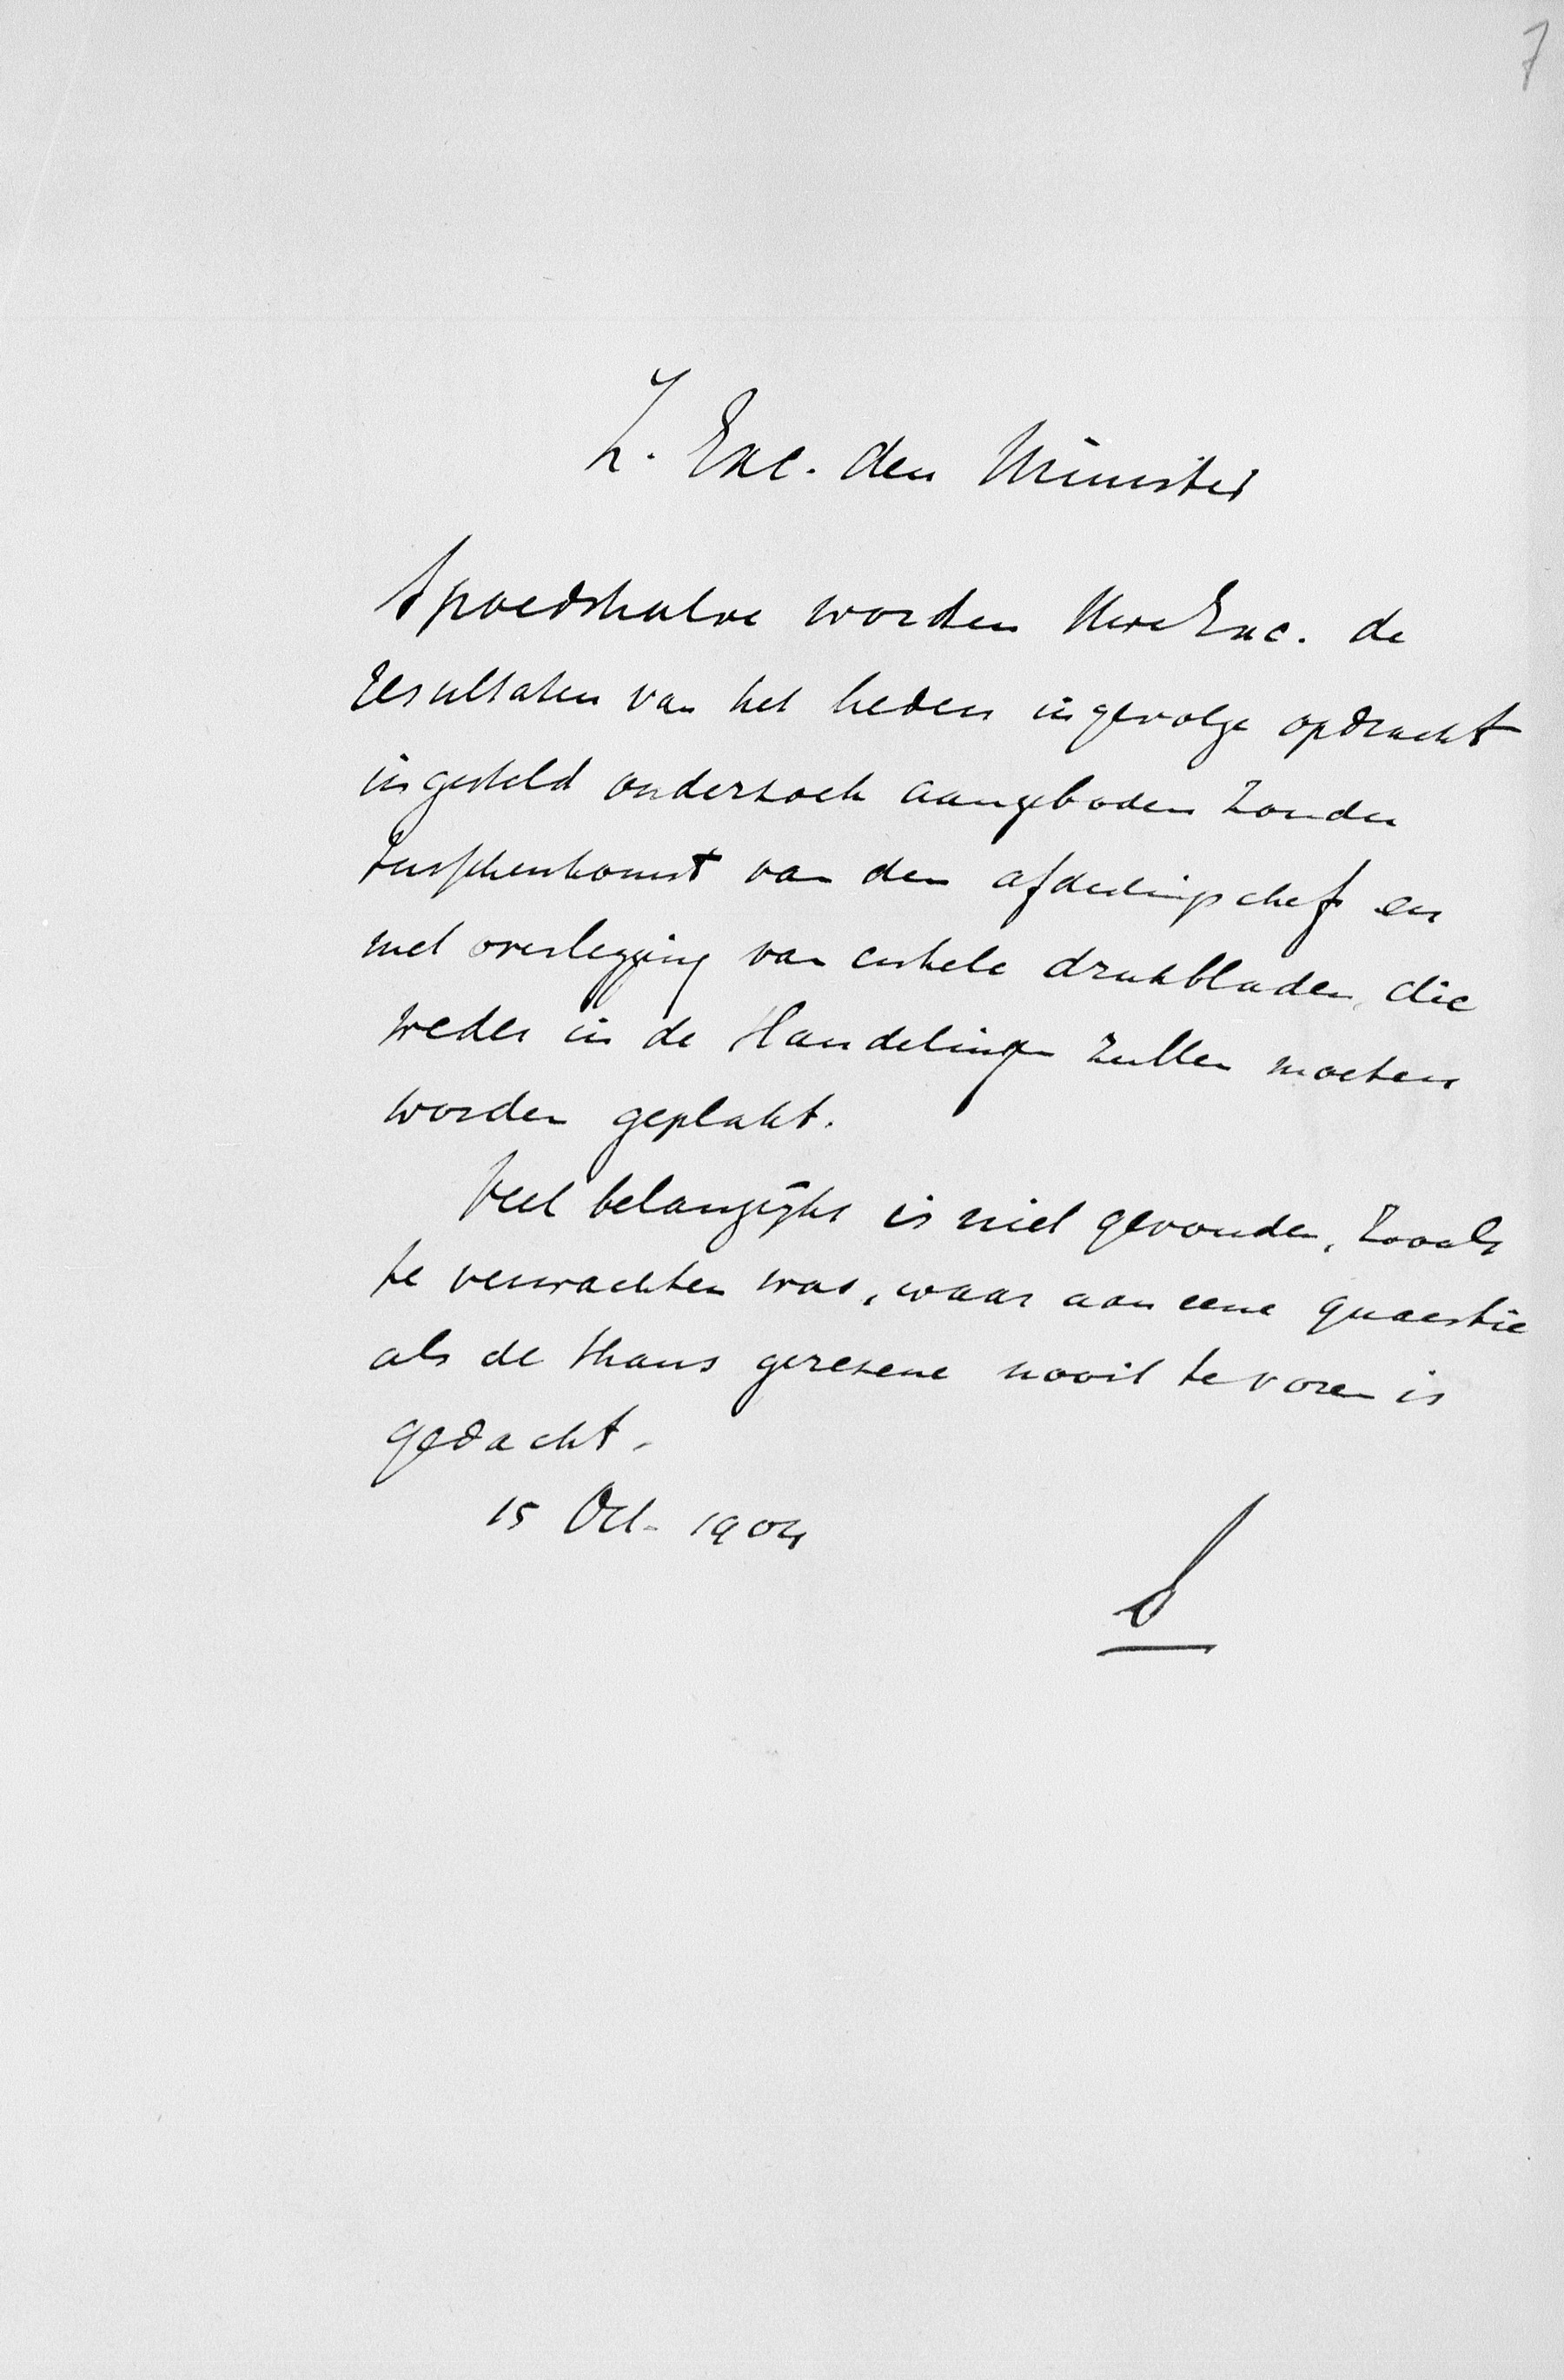 7
Z. Exc. den Minister
Spoedshalve worden Uwe Exc. de
resultaten van het heden ingevolge opdracht
ingesteld onderzoek aangeboden zonder
tusschenkomst van den afdelingschef en
met overlegging van enkele drukbladen, die
weder in de Handelingen zullen moeten
worden geplakt.
Veel belangrijks is niet gevonden, zooals
te verwachten was, waar aan eene quaestie
als de thans gerezene nooit te voren is
gedacht.
15 Oct. 1904